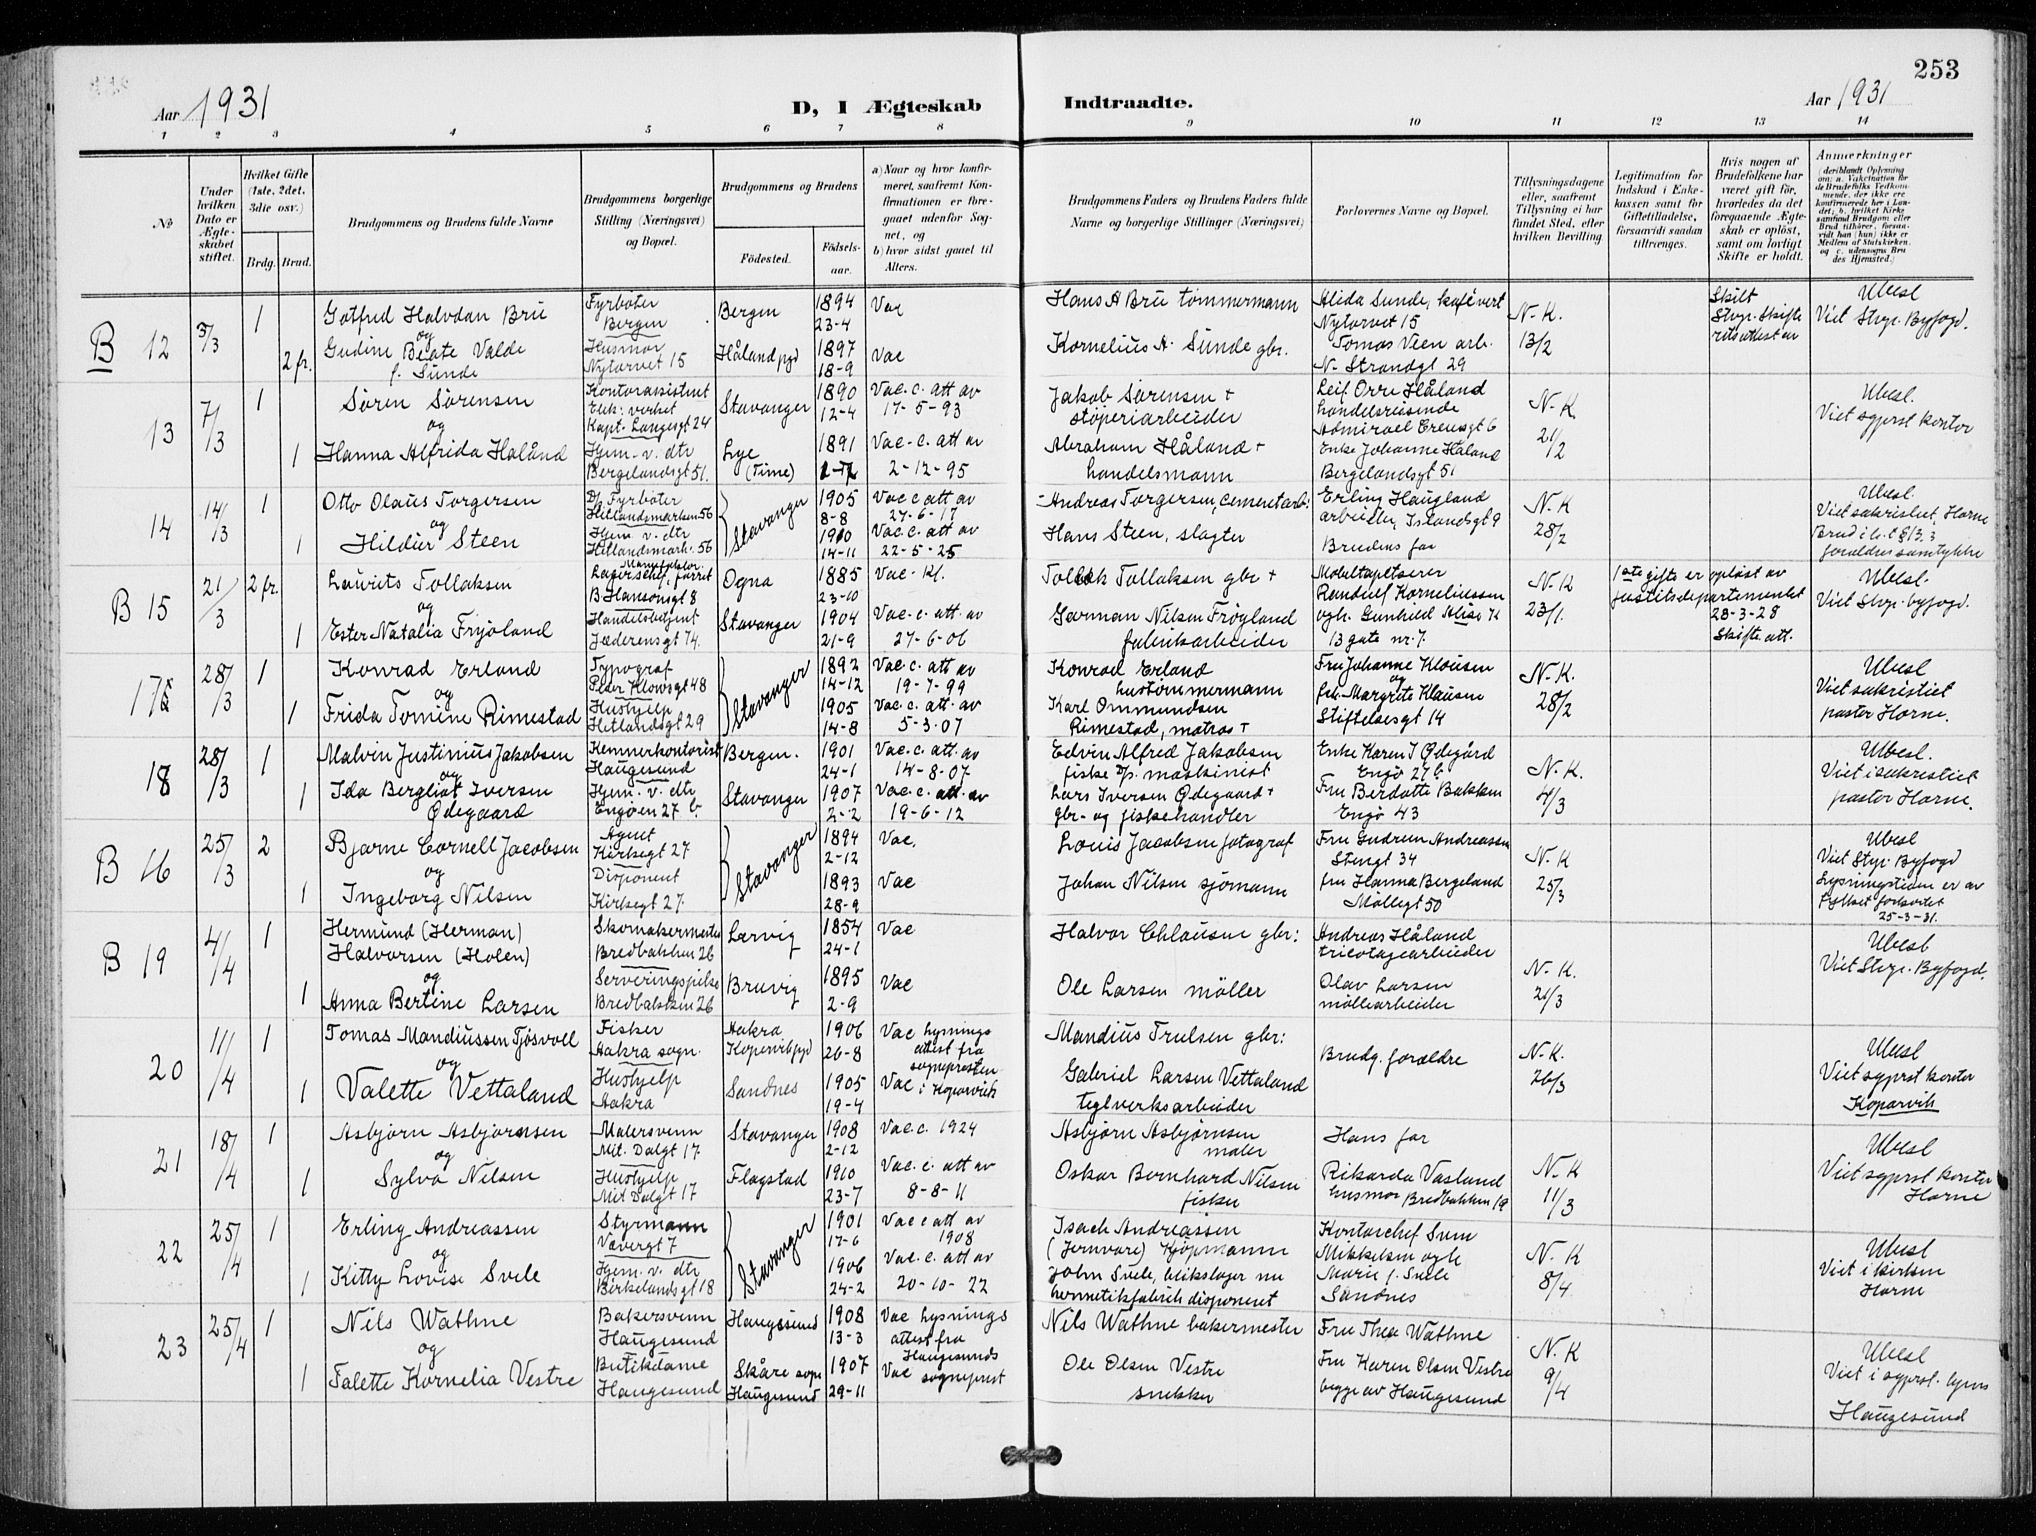 253
Aar 1931
D, I Ægteskab Indtraadte.
Aar 1931
1 2 3 4 5 6 7 8 9 10 11 12 13 14
No
Under hvilken Dato er Ægteskabet stiftet.
Hvilket Gifte (1ste, 2det, 3die osv.)
Brdg. Brud.
Brudgommens og Brudens fulde Navne
Brudgommens borgerlige Stilling (Næringsvei) og Bopæl.
Brudgommens og Brudens
Födested.
Födselsaar.
a) Naar og hvor konfirmeret, saafremt Konfirmationen er foregaaet udenfor Sognet, og
b) hvor sidst gaaet til Alters.
Brudgommens Faders og Brudens Faders fulde Navne og borgerlige Stillinger (Næringsvei)
Forlovernes Navne og Bopæl.
Tillysningsdagene eller, saafremt Tillysning ei har fundet Sted, efter hvilken Bevilling.
Legitimation for Indskud i Enkekassen samt for Giftetilladelse, forsaavidt saadan tiltrænges.
Hvis nogen af Brudefolkene har været gift för, hvorledes da det foregaaende Ægteskab er oplöst, samt om lovligt Skifte er holdt.
Anmærkninger
(deriblandt Oplysning om: a. Vakcination for de Brudefolks Vedkommende, der ikke ere konfirmerede her i Landet; b. hvilket Kirkesamfund Brudgom eller Brud tilhörer, forsaavidt han (hun) ikke er Medlem af Statskirken, og c. udensogns Brudes Hjemsted.)
B 12 3/3 1 Gotfred Halvdan Bru Fyrbøter Bergen Bergen 1894 23-4 Vac Hans A Bru tømmermann Alida Sunde, kafévert Nytorvet 15 N-K. 13/2 Skilt Ubesl
og Viet Stvgr. Byfogd.
2 fr. Gudine Beate Valde f. Sunde Husmor Nytorvet 15 Håland pgd 1897 18-9 Vac Kornelius A. Sunde gbr. Tomas Veen arb. N- Strandgt 29
13 7/3 1 Søren Sørensen Kontorassistent Elek: verket Kapt. Langesgt 24 Stavanger 1890 12-4 Vac. c. att av 17-5-93 Jakob Sørensen + støperiarbeider Leif Orre Håland handelsreisende N-K. 21/2 Ubesl. Viet sgprst kontor
og
1 Hanna Alfrida Haland Hjem. v. dtr Bergelandsgt 51. Lye (Time) 1891 Vac. c. att av 2-12-95 Abraham Håland + handelsmann Enke Johanne Håland Bergelandsgt 51
14 14/3 1 Otto Olaus Torgersen D/s Fyrbøter Hetlandsmarken 56 Stavanger 1905 8-8 Vac c att av 27-6-17 Andreas Torgersen, cementarb: Erling Haugland arbeider, Islandsgt 9 N-K 28/2 Ubesl. Viet sakristiet, Horne
og
1 Hildur Steen Hjem v. dtr Hetlandsmark. 56 1910 14-11 Vac. c. att av 22-5-25 Hans Steen, slagter Brudens far foreldres samtykke
B 15 21/3 2 fr. Laurits Tollaksen B Hansonsgt 8 Ogna 1885 23-10 Vac. Kl. Tollak Tollaksen gbr + Møbeltapetserer Randulf Korneliussen N-K 23/1. 1ste gifte er opløst av justitsdepartementet 28-3-28 Skifte att. Ubesl. Viet Stvgr. byfogd.
og
1 Ester Natalia Frøiland Handelsbetjent Jæderensgt 74. Stavanger 1904 21-9 Vac. c. att. av 27-6-06 German Nilsen Frøyland fabrikarbeider 13 gate nr. 7.
17 28/3 1 Konrad Erland Typograf Peder Klowsgt 48 Stavanger 1892 14-12 Vac. c. att av 19-7-99 Konrad Erland hustømmermann Fru Johanne Klausen og N-K. 28/2 Ubesl Viet sakristiet pastor Horne.
og
1 Frida Tomine Rimestad Hushjelp Hetlandsgt 29 1905 14-8 Vac. c. att. av 5-3-07 Karl Ommundsen Rimestad, matros + frk. Margrete Klausen Stiftelsesgt 14
18 28/3 1 Malvin Justinius Jakobsen Kemnerkontorist Haugesund Bergen. 1901 24-1 Vac. c. att. av 14-8-07 Edvin Alfred Jakobsen fiske D/s. maskinist Enke Karen T Ødegård Engø 27 b N-K. 4/3 Ubesl. Viet i sakristiet pastor Horne.
og
1 Ida Bergliot Iversen Ødegaard Hjem. v. dtr Engøen 27 b. Stavanger 1907 2-2 Vac. c. att. av 19-6-12 Lars Iversen Ødegaard + gbr- og fiskehandler Fru Berdotte Bakken Engø 43
B 16 25/3 2 Bjarne Cornell Jacobsen Agent Kirkegt 27 Stavanger 1894 2-12 Vac. Louis Jacobsen fotograf Fru Gudrun Andreassen Stengt 34 N-K 25/3 Ubesl Viet Stvgr. Byfogd
og Lysningstiden er av Fylket forkortet 25-3-31.
1 Ingeborg Nilsen Disponent Kirkegt 27. 1893 28-9 Vac Johan Nilsen sjømann fru Hanna Bergeland Møllegt 50
B 19 4/4 1 Hermund (Herman) Halvorsen (Holen) Skomakermester Bredbakken 26 Lervig 1854 24-1 Vac Halvor Chlausen gbr: Andreas Håland tricotagearbeider N-K. 21/3 Ubesl Viet Stvgr. Byfogd.
og
1 Anna Bertine Larsen Serveringspike Bredbakken 26 Bruvig 1895 2-9 Vac Ole Larsen møller Olav Larsen møllearbeider
20 11/4 1 Tomas Mandiussen Tjøsvoll Fisker Aakra sogn. Aakra Kopervik pgd 1906 26-8 Vac lysnings attest fra sogneprosten i Kopervik Mandius Trulsen gbr: Brudg. forældre N-K. 26/3 Ubesl Viet sgprst kontor Koparvik
og
1 Valette Vettaland Hushjelp Aakra Sandnes 1905 19-4 Vac Gabriel Larsen Vettaland teglverksarbeider
21 18/4 1 Asbjørn Asbjørnsen Malersvenn Mit. Dalgt 17. Stavanger 1908 2-12 Vac. c. 1924 Asbjørn Asbjørnsen maler Hans far N-K 11/3 Ubesl Viet sgprst kontor Horne
og
1 Sylva Nilsen Hushjelp Mit Dalgt 17 Flagstad 1910 23-7 Vac. c. att av 8-8-11 Oskar Bernhard Nilsen fisker Rikarda Vasland husmor Bredbakken 19
22 25/4 1 Erling Andreassen Styrmann Vævergt 7 Stavanger 1901 17-6 Vac c att av 1908 Isach Andreassen (Jernvare) Kjøpmann Kontorchef Sven Mikkelsen og N-K 8/4 Ubesl Viet i kirken Horne
og
1 Kitty Lovise Svele Hjem. v. dtr Birkelandsgt 18 1906 24-2 Vac. c. att av 20-10-22 John Svele, blikslager nu hermetikfabrik disponent Marie f. Svele Sandnes
23 25/4 1 Nils Wathne Bakersvenn Haugesund Haugesund 1908 13-3 Vac lysnings attest fra Haugesunds sogneprest Nils Wathne bakermester Fru Thea Wathne N-K 9/4 Ubesl Viet i sgprst. Haugesund
og
1 Talette Kornelia Vestre Butikdame Haugesund Skåre sogn Haugesund 1907 29-11 Vac Ole Olsen Vestre snekker Fru Karen Olsen Vestre begge av Haugesund